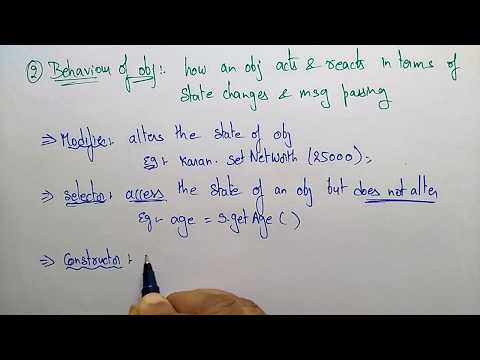 ② Behaviour of obj:. how an obj acts & reacts in terms of
state changes & msg passing
⇒ Modifier:. alters the state of obj
Eg:- Karan. set Networth (25000);
⇒ selector:. access the state of an obj but does not alter
Eg:- age = S.getAge ( )
⇒ Constructor :.